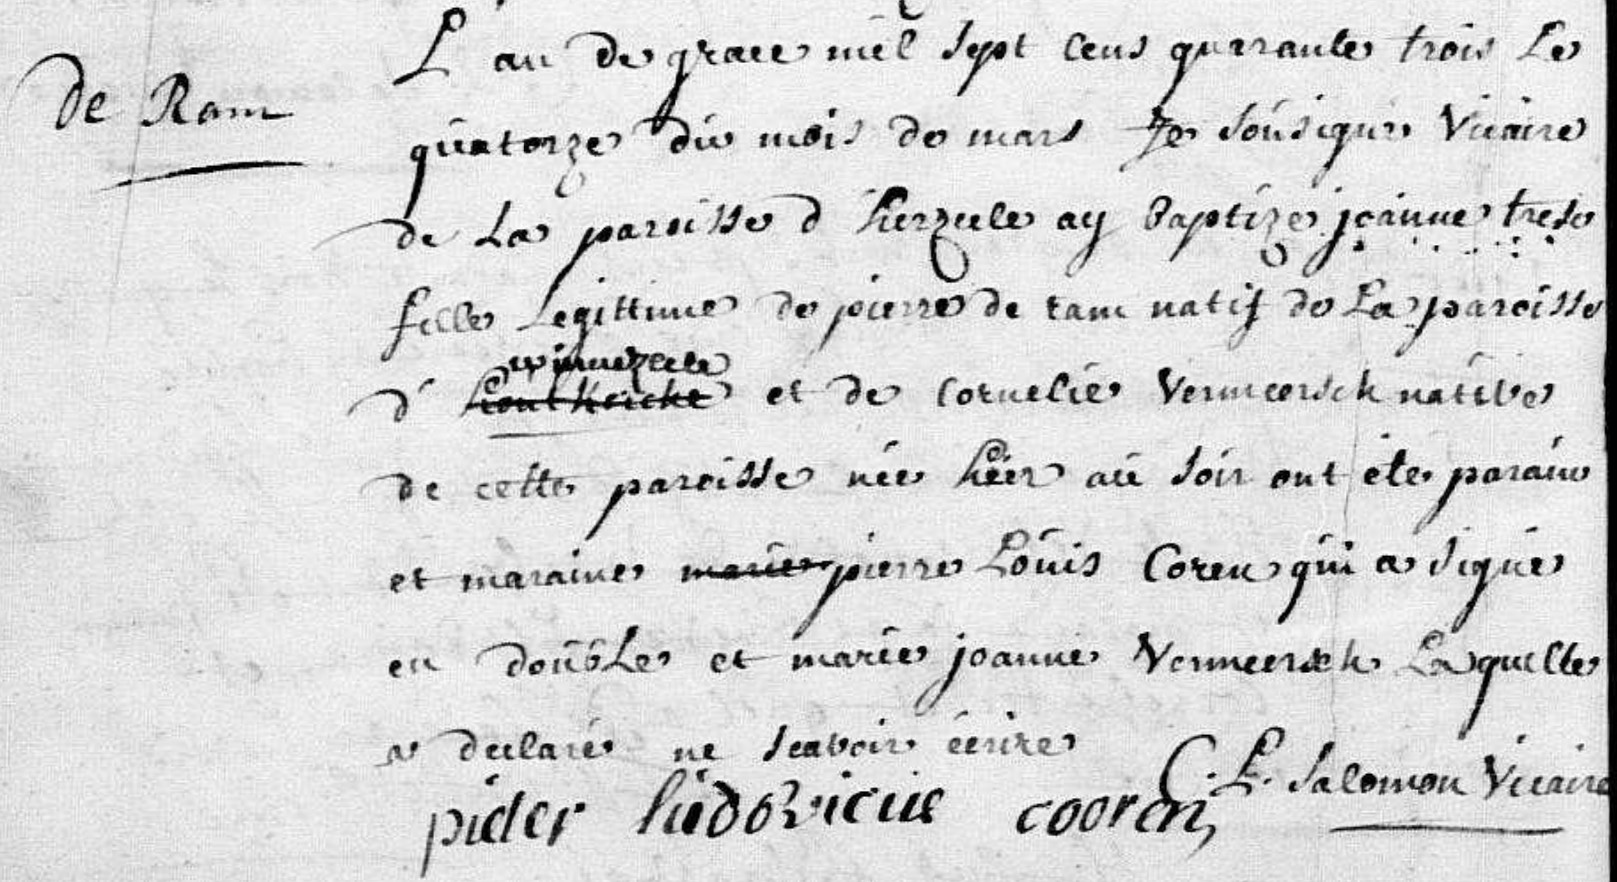 de Ram
L'an de grace mil sept cens quarante trois Le
quatorze du mois de mars Je sousigné Vicaire
de La paroisse d'herzeele ay baptizé joanne trese
fille Legittime de pierre de ram natif de La paroisse
winnezeele
d' houtkercke et de Cornelie Vermeersch native
de cette paroisse née hier au soir ont été parain
et maraine marie pierre Louis Coren qui a signé
en double et marie joanne Vermeersch Laquelle
a declaré ne scavoir écrire
C. L. Salomon Vicaire
pieter ludovicus cooren